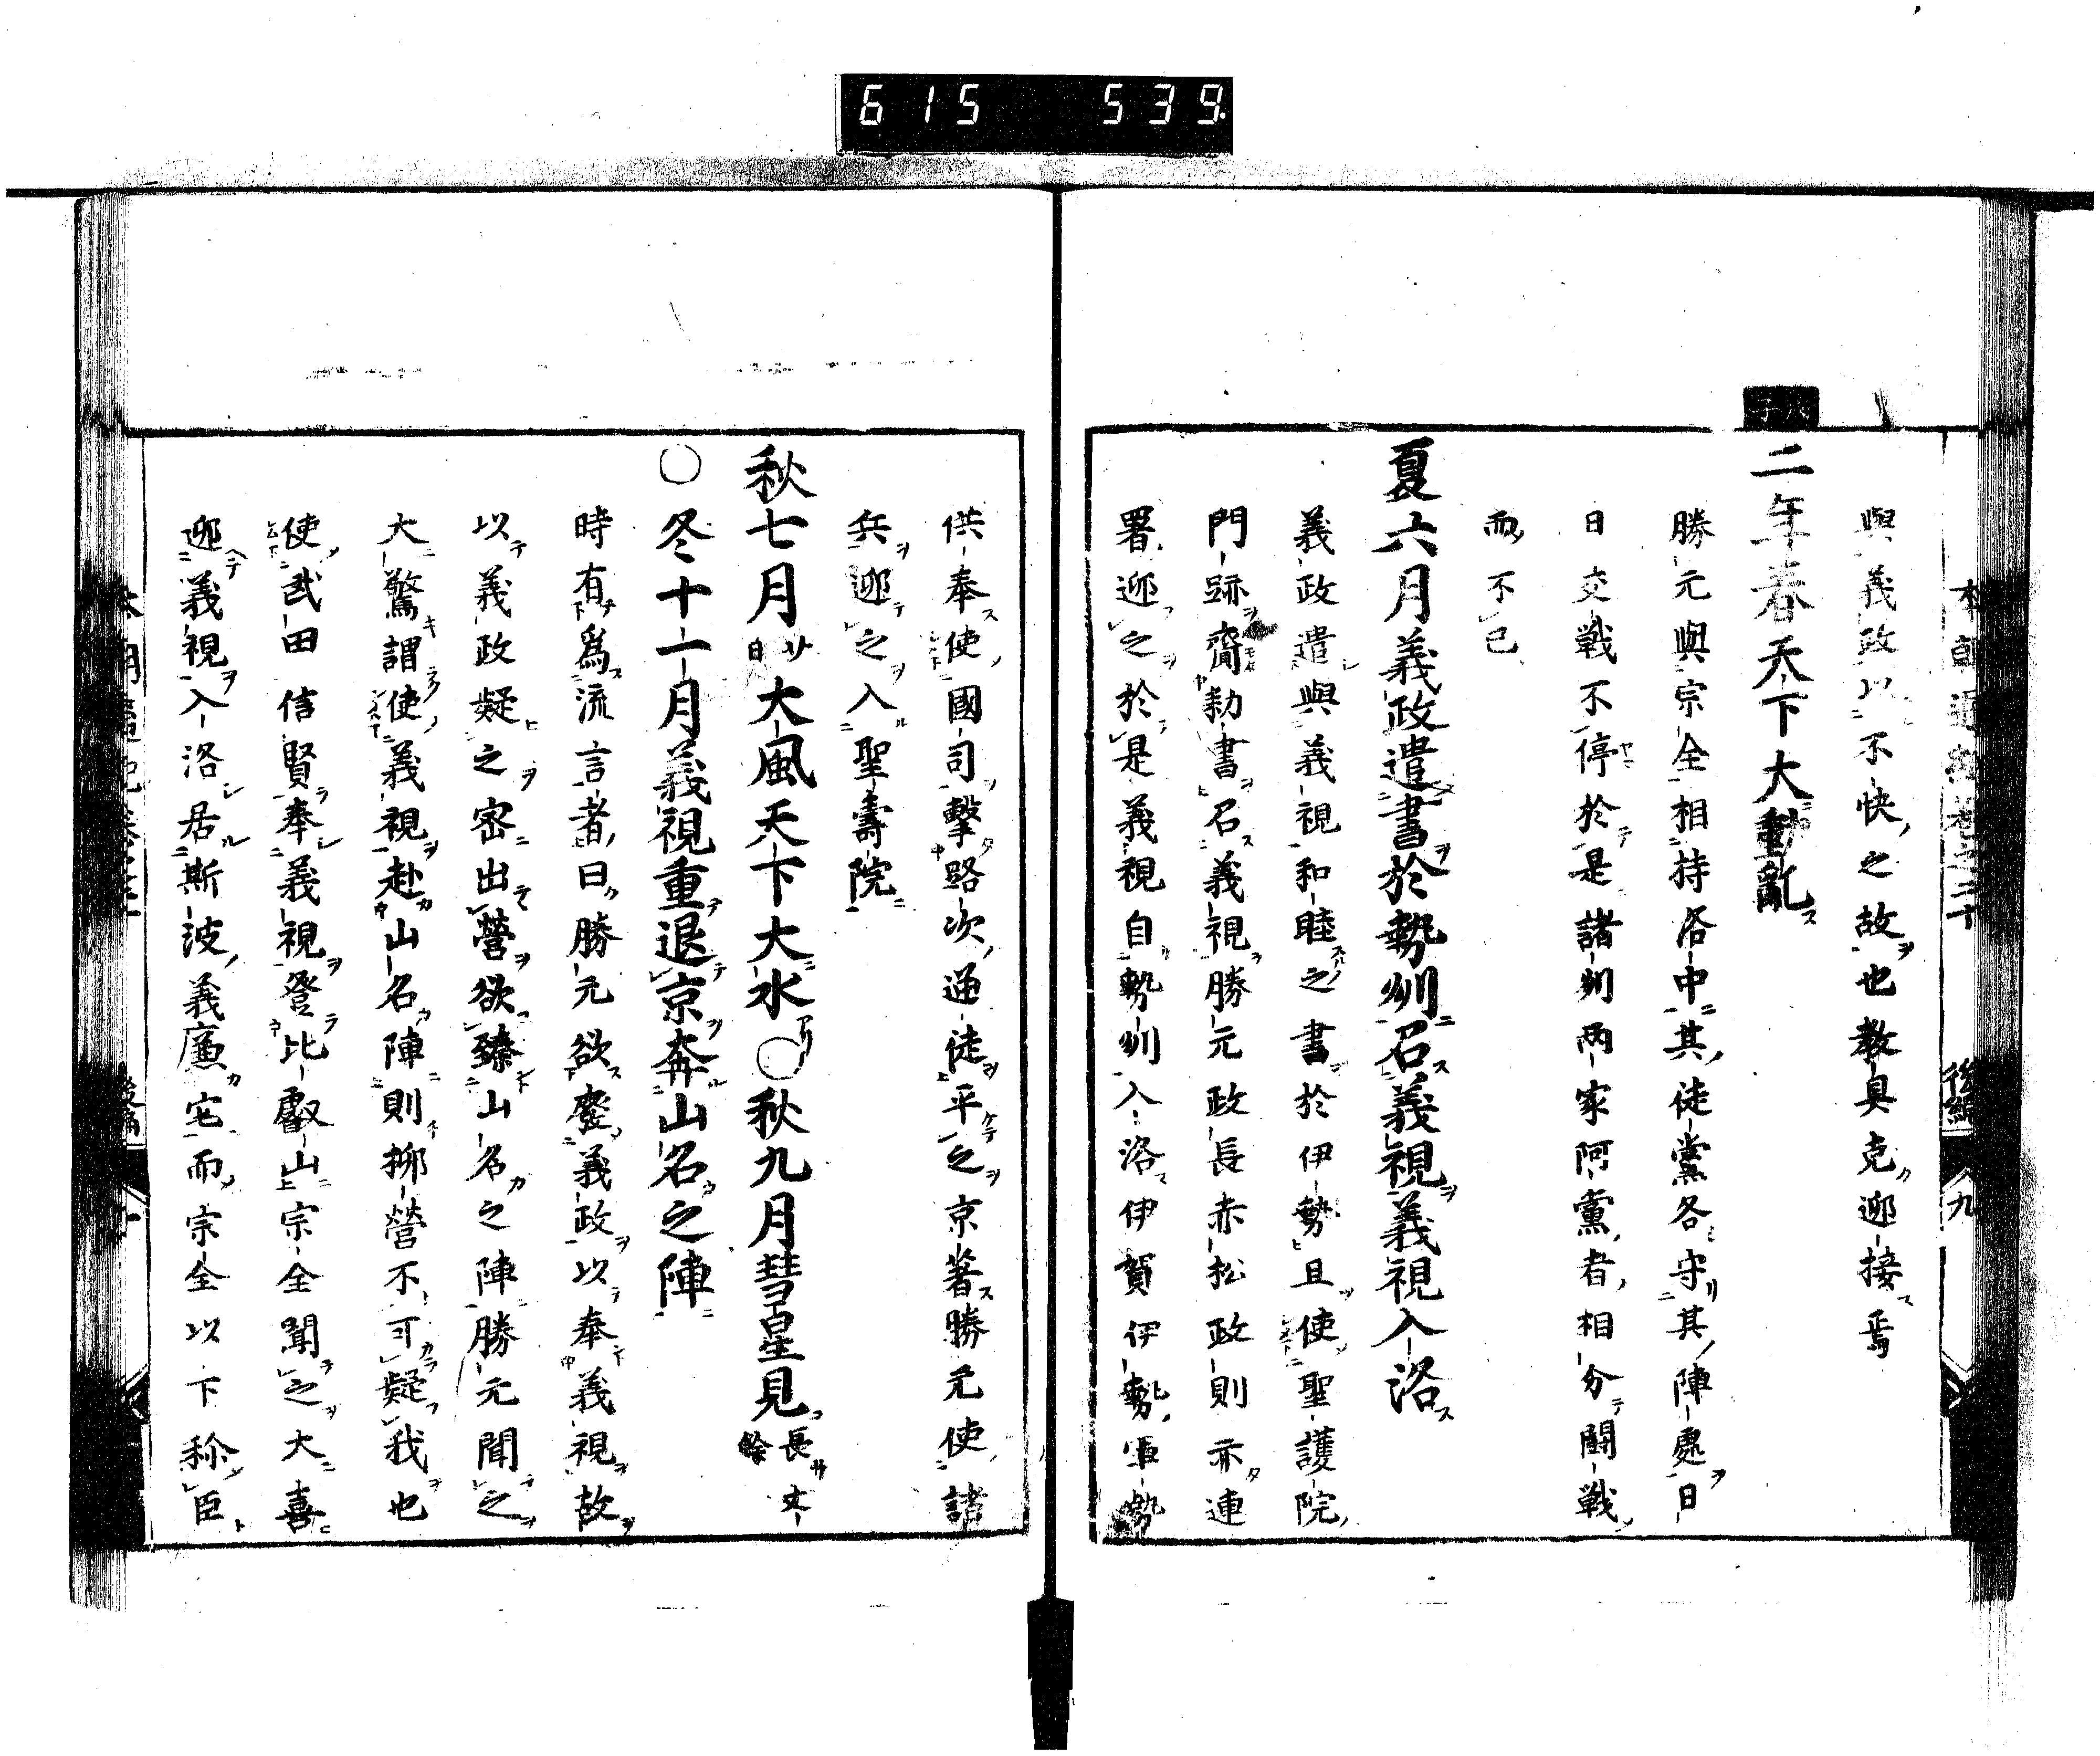 615 539
與義政以不快之故也教具克迎接焉
二年春天下大動亂
勝元與宗全相持洛中其徒黨各守其陣處日
日交戰不停於是諸州兩家阿黨者相分鬪戰
而不已
夏六月義政遣書於勢州召義視義視入洛
義政遣與義視和睦之書於伊勢且使聖護院
門跡齎勅書召義視勝元政長赤松政則亦連
署迎之於是義視自勢州入洛伊賀伊勢軍勢
供奉使國司擊路次逆徒平之京著勝元使諸
兵迎之入聖壽院
秋七月廿日大風天下大水○秋九月彗星見長丈餘
○冬十一月義視重退京奔山名之陣
時有爲流言者曰勝元欲廢義政以奉義視故
以義政疑之密出營欲臻山名之陣勝元聞之
大驚謂使義視赴山名陣則柳營不可疑我也
使武田信賢奉義視登比叡山宗全聞之大喜
迎義視入洛居斯波義廉宅而宗全以下称臣